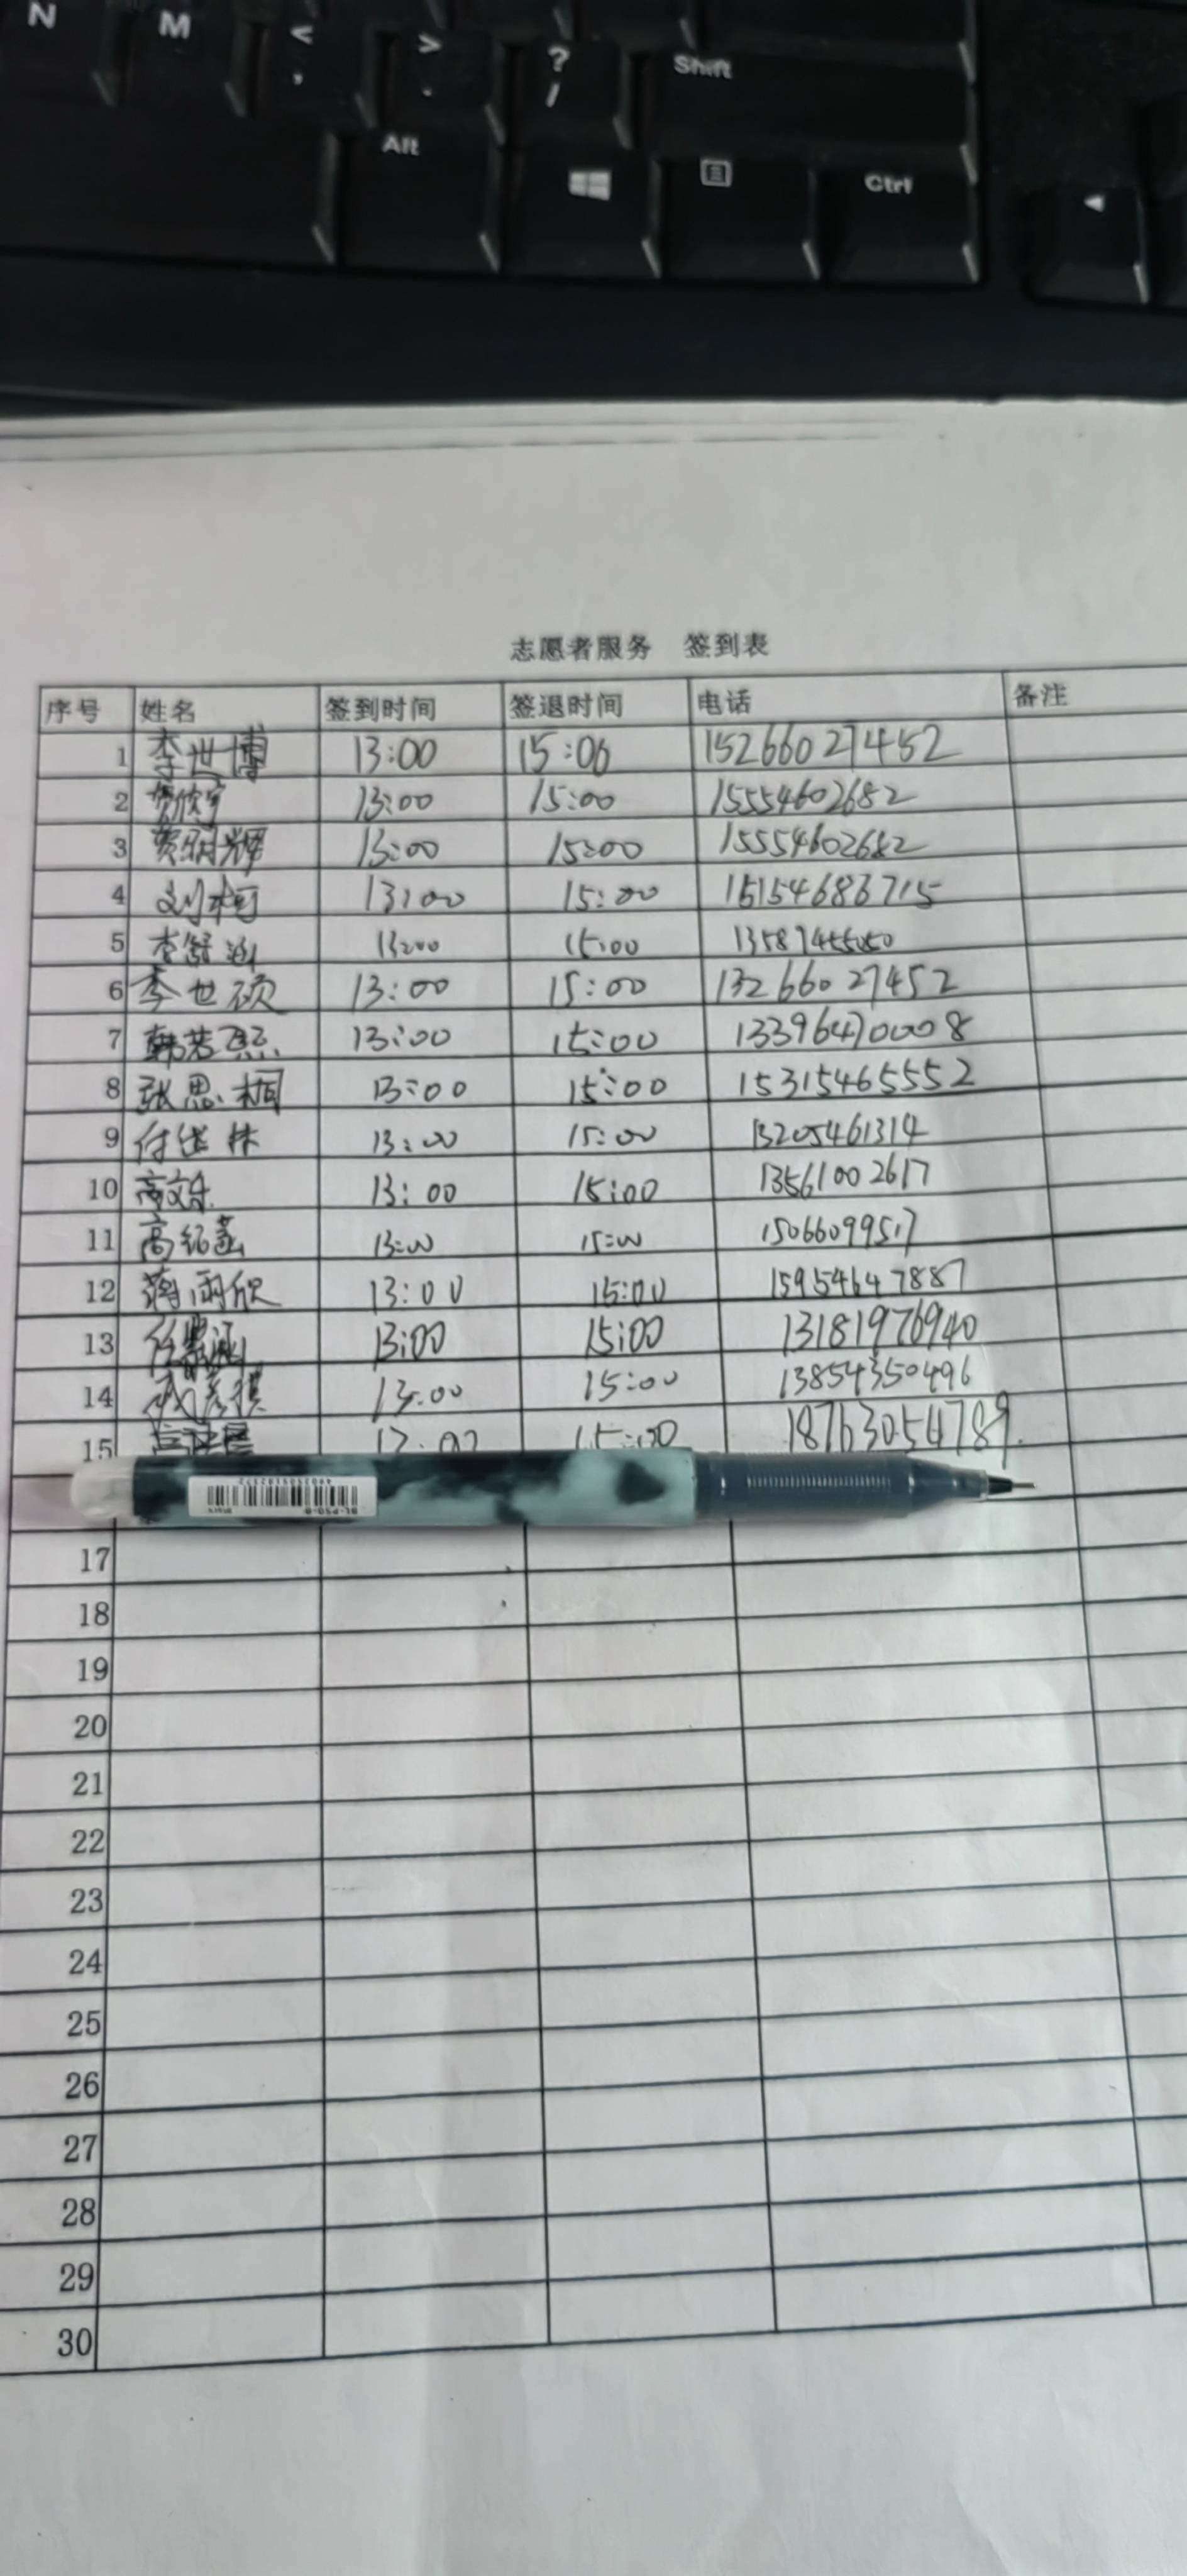 N M < , > . ? / Shift
Alt Ctrl
志愿者服务 签到表
序号 姓名 签到时间 签退时间 电话 备注
1 李世博 13:00 15:06 15266027452
2 13:00 15:00 15554602682
3 13:00 15:00 15554602682
4 刘柯 13:00 15:00 15154686715
5 李舒涵 13:00 15:00 13589455050
6 李世硕 13:00 15:00 13266027452
7 韩若熙 13:00 15:00 13396470008
8 张思桐 13:00 15:00 15315465552
9 13:00 15:00 13205461314
10 高文乐 13:00 15:00 13561002617
11 高绍菡 13:00 15:00 15066099517
12 蒋雨欣 13:00 15:00 15954647887
13 13:00 15:00 13181976940
14 13:00 15:00 13854350496
15 13:00 15:00 18763054789
17
18
19
20
21
22
23
24
25
26
27
28
29
30